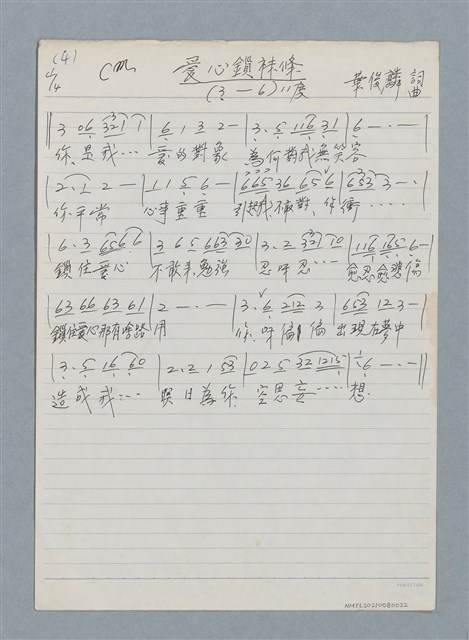 (4)
4/4 Cm 愛心鎖袜條 葉俊麟 詞曲
(3－6) 11度
3 06 321 1 | 6 1 3 2－ | 3．5 116 31 | 6－．－
你是我… 愛的對象 為何對我無笑容
2．1 2－ | 1 1 5 6－ | 665 36 656 | 6533－．
你平常 心事重重 引起我不敢對你衝……
6．3 6566 | 3 6 5 663 30 | 3．2 321 10 | 116 165 6－
鎖住愛心 不敢來勉強 忍呼忍… 愈忍愈悲傷
63 66 63 61 | 2－．－ | 3．6 212 3 | 653 12 3－
鎖住愛心那有啥路用 你呼偏偏出現在夢中
3．5 16 60 | 2．2 1 53 | 025 32 1215 | 6－．－
造成我… 與日為你 空思妄…想
NMTL20210080022